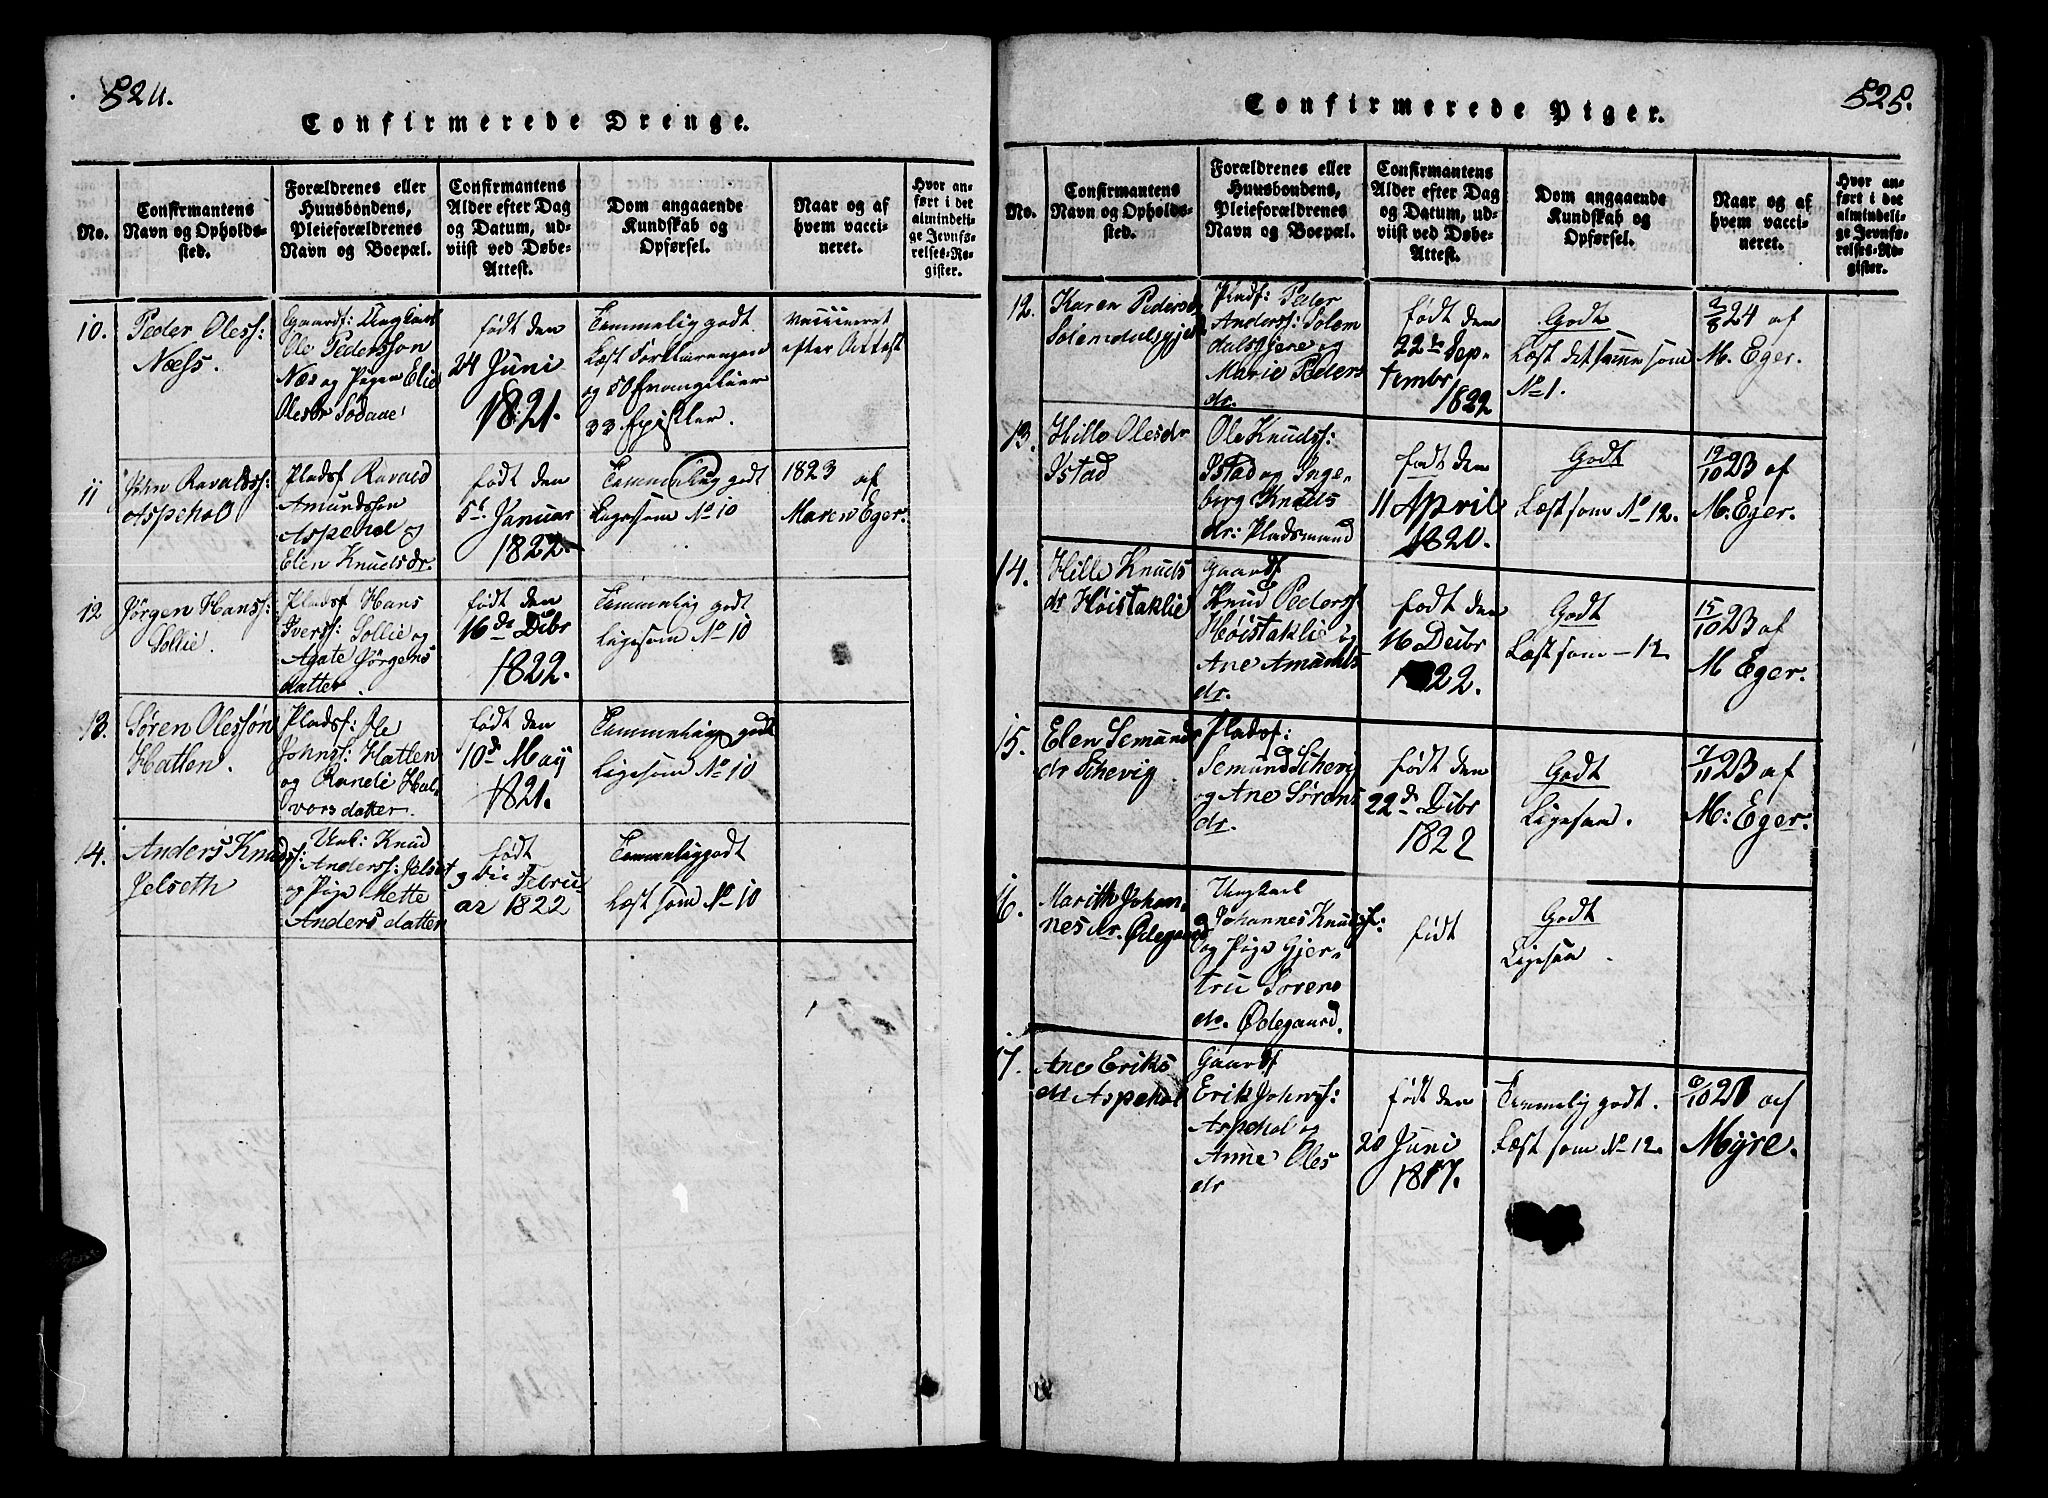 524.
Confirmerede Drenge.
No.
Confirmantens
Navn og Opholds-
sted.
Forældrenes eller
Huusbondens,
Pleieforældrenes
Navn og Boepæl.
Confirmantens
Alder efter Dag
og Datum, ud-
viist ved Døbe-
Attest.
Dom angaaende
Kundskab og
Opførsel.
Naar og af
hvem vacci-
neret.
Hvor an-
ført i det
almindeli-
ge Jevnfø-
relses-Re-
gister.
10.
Peder Oless:
Næss.
Ole Pedersson
Næs og Pigen Elie
Olesdr Sodaae
født den
24 Juni
1821.
Temmelig godt
Læst Forklaringen
og 50 Evangelier
33 Epistler.
vaccineret
efter Attest
11
John Ravalds:
Aspehol
Pladsf Ravald
Amundsson
Aspehol og
Elen Knudsdr.
født den
5t Januar
1822.
Temmelig godt
Ligesom No 10
1823 af
Maren Eger.
12
Jørgen Hanss:
Sollie.
Pladsf Hans
Iverss: Sollie og
Agate Jørgens
datter.
født den
16de Dcbr
1822.
Temmelig godt
Ligesom No 10
13.
Søren Olessøn
Hatten.
Pladsf: Ole
Johnss: Hatten
og Randi Hal-
vorsdatter.
født den
10de May
1821.
Temmelig godt
Ligesom No 10
14.
Anders Knuds:
Jelseth
Unk: Knud
Anderss: Jelset
og Pige Mette
Andersdatter
født
3die Febru
ar 1822
Temmelig godt
Læst som No 10
525.
Confirmerede Piger.
No.
Confirmantens
Navn og Opholds-
sted.
Forældrenes eller
Huusbondens,
Pleieforældrenes
Navn og Boepæl.
Confirmantens
Alder efter Dag
og Datum, ud-
viist ved Døbe-
Attest.
Dom angaaende
Kundskab og
Opførsel.
Naar og af
hvem vacci-
neret.
Hvor an-
ført i det
almindeli-
ge Jevnfø-
relses-Re-
gister.
12.
Karen Pedersdr
Solemdalsgjere
Pladsf: Peder
Anderss: Solem
dalsgjere og
Marie Peders
dr.
født den
22de Sep-
tembr
1822
Godt
Læst det samme som
No 1.
2/8 24 af
M. Eger.
13.
Hille Olesdr
Istad
Ole Knudss:
Istad og Inge-
borg Knuds
dr: Pladsmand
født den
11 April
1820.
Godt
Læst som No 12.
19/10 23 af
M. Eger.
14.
Hille Knuds
dr Høistaklie
Gaardf
Knud Pederss
Høistaklie og
Ane Amunds
dr.
født den
16 Decbr
1822.
Godt
Læst som - 12.
15/10 23 af
M Eger.
15.
Elen Semunds
dr Schevig
Pladsf:
Semund Schevig
og Ane Sørens
dr.
født den
22de Dcbr
1822
Godt
Ligesaa.
7/11 23 af
M: Eger.
16.
Marith Johan-
nesdr. Ødegaard
Ungkarl
Johannes Knudss:
og Pige Gjer-
tru Sørens
dr. Ødegaard.
født
Godt
Ligesaa.
17.
Ane Eriks
dr Aspehol
Gaardf
Erik Johnss:
Aspehol og
Anne Oles
dr
født den
20 Juni
1817.
Temmelig godt.
Læst som No 12.
af
Myre.